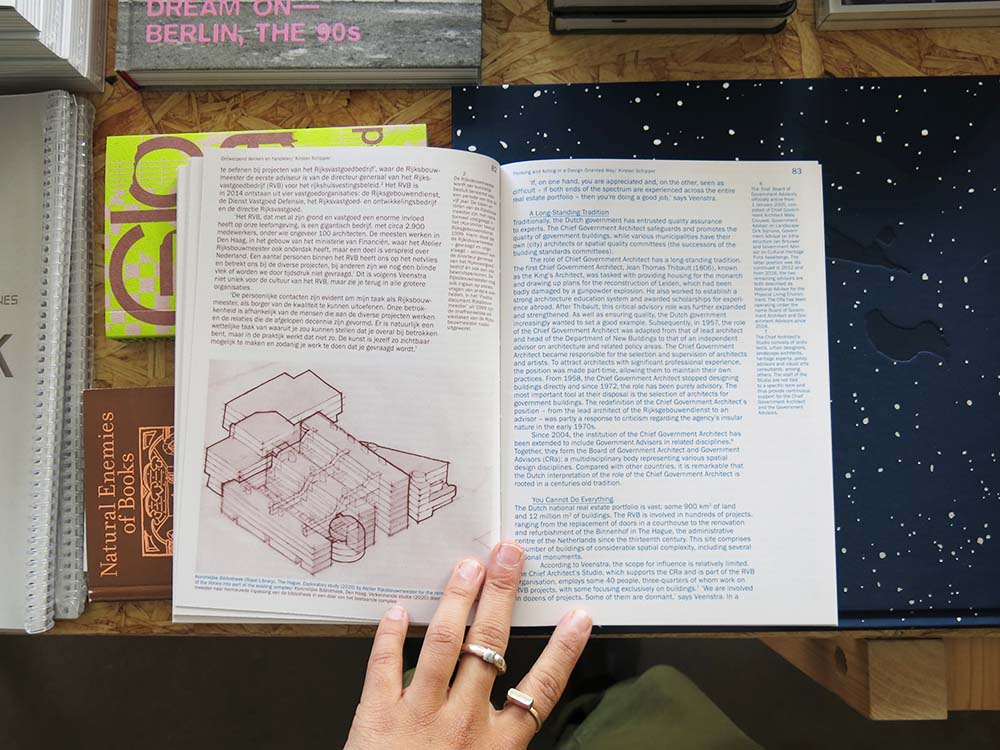 DREAM ON—
BERLIN, THE 90s
Natural Enemies
of Books
Ontwerpend denken en handelen/ Kirsten Schipper
82
te oefenen bij projecten van het Rijksvastgoedbedrijf, waar de Rijksbouw-
meester de eerste adviseur is van de directeur-generaal van het Rijks-
vastgoedbedrijf (RVB) voor het rijkshuisvestingsbeleid.² Het RVB is
in 2014 ontstaan uit vier vastgoedorganisaties: de Rijksgebouwendienst,
de Dienst Vastgoed Defensie, het Rijksvastgoed- en ontwikkelingsbedrijf
en de directie Rijksvastgoed.
'Het RVB, dat met al zijn grond en vastgoed een enorme invloed
heeft op onze leefomgeving, is een gigantisch bedrijf, met circa 2.900
medewerkers, onder wie ongeveer 100 architecten. De meesten werken in
Den Haag, in het gebouw van het ministerie van Financiën, waar het Atelier
Rijksbouwmeester ook onderdak heeft, maar een deel is verspreid over
Nederland. Een aantal personen binnen het RVB heeft ons op het netvlies
en betrekt ons bij de diverse projecten, bij anderen zijn we nog een blinde
vlek of worden we door tijdsdruk niet gevraagd.' Dit is volgens Veenstra
niet uniek voor de cultuur van het RVB, maar zie je terug in alle grotere
organisaties.
'De persoonlijke contacten zijn evident om mijn taak als Rijksbouw-
meester, als borger van de kwaliteit te kunnen uitoefenen. Onze betrok-
kenheid is afhankelijk van de mensen die aan de diverse projecten werken
en de relaties die de afgelopen decennia zijn gevormd. Er is natuurlijk een
wettelijke taak van waaruit je zou kunnen stellen dat je overal bij betrokken
bent, maar in de praktijk werkt dat niet zo. De kunst is jezelf zo zichtbaar
mogelijk te maken en zodanig je werk te doen dat je gevraagd wordt.'
Koninklijke Bibliotheek (Royal Library), The Hague. Exploratory study (2020) by Atelier Rijksbouwmeester for the
of the library into part of the existing complex/ Koninklijke Bibliotheek, Den Haag. Verkennende studie (2020) door
meester naar hernieuwde inpassing van de bibliotheek in een deel van het bestaande complex
Thinking and Acting in a Design-Oriented Way/ Kirsten Schipper
83
'If, on one hand, you are appreciated and, on the other, seen as
difficult – if both ends of the spectrum are experienced across the entire
real estate portfolio – then you're doing a good job,' says Veenstra.
A Long-Standing Tradition
Traditionally, the Dutch government has entrusted quality assurance
to experts. The Chief Government Architect safeguards and promotes the
quality of government buildings, while various municipalities have their
own (city) architects or spatial quality committees (the successors of the
building standards committees).
The role of Chief Government Architect has a long-standing tradition.
The first Chief Government Architect, Jean Thomas Thibault (1806), known
as the King's Architect, was tasked with providing housing for the monarch
and drawing up plans for the reconstruction of Leiden, which had been
badly damaged by a gunpowder explosion. He also worked to establish a
strong architecture education system and awarded scholarships for experi-
ence abroad. After Thibault, this critical advisory role was further expanded
and strengthened. As well as ensuring quality, the Dutch government
increasingly wanted to set a good example. Subsequently, in 1957, the role
of the Chief Government Architect was adapted from that of lead architect
and head of the Department of New Buildings to that of an independent
advisor on architecture and related policy areas. The Chief Government
Architect became responsible for the selection and supervision of architects
and artists. To attract architects with significant professional experience,
the position was made part-time, allowing them to maintain their own
practices. From 1958, the Chief Government Architect stopped designing
buildings directly and since 1972, the role has been purely advisory. The
most important tool at their disposal is the selection of architects for
government buildings. The redefinition of the Chief Government Architect's
position – from the lead architect of the Rijksgebouwendienst to an
advisor – was partly a response to criticism regarding the agency's insular
nature in the early 1970s.
Since 2004, the institution of the Chief Government Architect has
been extended to include Government Advisors in related disciplines.⁶
Together, they form the Board of Government Architect and Government
Advisors (CRa): a multidisciplinary body representing various spatial
design disciplines. Compared with other countries, it is remarkable that
the Dutch interpretation of the role of the Chief Government Architect is
rooted in a centuries-old tradition.
You Cannot Do Everything
The Dutch national real estate portfolio is vast: some 900 km² of land
and 12 million m² of buildings. The RVB is involved in hundreds of projects,
ranging from the replacement of doors in a courthouse to the renovation
and refurbishment of the Binnenhof in The Hague, the administrative
centre of the Netherlands since the thirteenth century. This site comprises
number of buildings of considerable spatial complexity, including several
monuments.
According to Veenstra, the scope for influence is relatively limited.
The Chief Architect's Studio, which supports the CRa and is part of the RVB
organisation, employs some 40 people, three-quarters of whom work on
RVB projects, with some focusing exclusively on buildings.⁷ 'We are involved
in dozens of projects. Some of them are dormant,' says Veenstra. 'In a